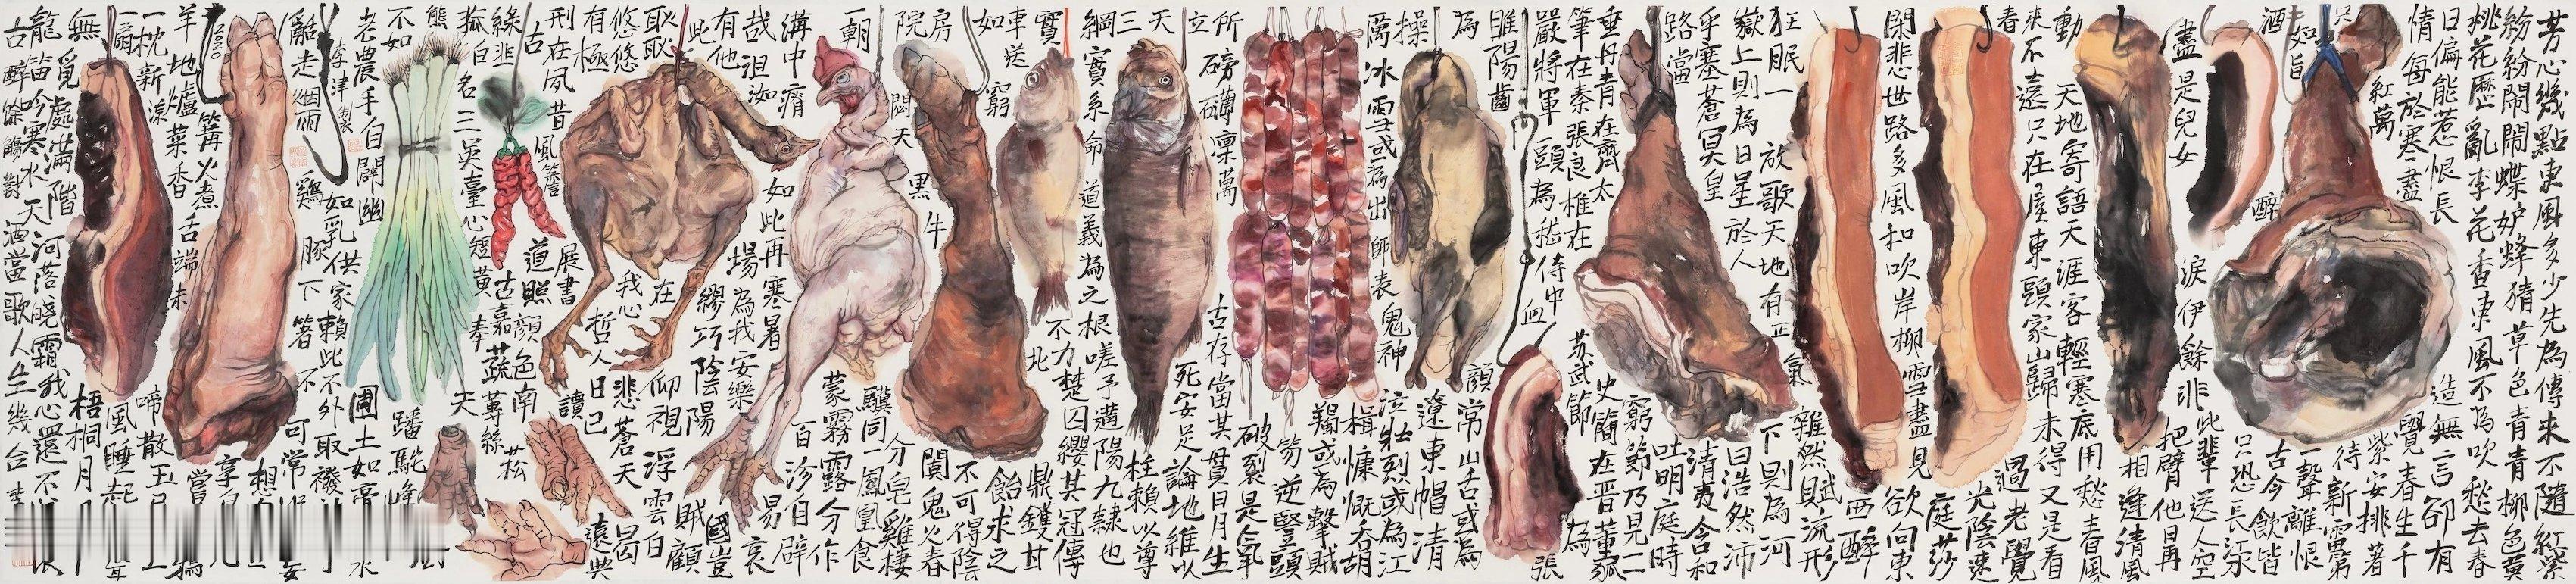 芳心幾點東風多少先為傳來不隨紅紫
紛紛鬧鬧蝶妒蜂猜草色青青柳色黃
桃花歷亂李花香東風不為吹愁去春
日偏能惹恨長
造無言卻有
情每於寒盡
覺春生千
紅萬
紫安排著
只
待新雷第
一聲離恨
如旨
酒
古今飲皆
醉
只恐長江水
盡是兒女
淚伊餘非
此輩送人空
把臂他日再
相逢清風
動天地寄語天涯客輕寒底用愁春風
來不遠只在屋東頭家山歸未得又是看
春
過老覺
光陰速
閑悲世路多風和吹岸柳雪盡見
庭莎
欲向東
西醉
狂眠一放歌天地有正氣
雜然賦流形
下則為河
嶽上則為日星於人
曰浩然沛
乎塞蒼冥皇
路當
清夷含和
吐明庭時
窮節乃見一
垂丹青在齊太
史簡在晉董狐
筆在秦張良椎在
蘇武節
為
嚴將軍頭為嵇侍中
血
為張
睢陽齒
為
顏常山舌或為
遼東帽清
操
萬冰雪或為出師表鬼神
泣壯烈或為江
楫慷慨吞胡
羯或為擊賊
笏逆豎頭
破裂是氣
所磅礴凜萬
古存當其貫日月生
死安足論地維以
立
天
柱賴以尊
三
綱實系命道義為之根嗟予遘陽九隸也
實
不力楚囚纓其冠傳
車送窮
北
鼎鑊甘
如
飴求之
不可得陰
房
闃鬼火春
院閟天黑牛
驥同一
皂雞棲
鳳凰食
一朝
蒙霧露分作
溝中瘠
如此再寒暑
百沴自辟
易哀
哉沮洳
場為我安樂
國豈
有他
繆巧陰陽
賊顧
此
耿耿
在
仰視浮雲白
悠悠
我心
悲蒼天
曷
有極
哲人日已
遠典
刑在夙昔風簷
展書
讀
古
道照
顏色南
菘
綠韭
古嘉蔬蓴絲
菰白名三吳臺心短黃
奉
天
熊
蹯駝峰
不如
老農手自闢幽
圃土如膏水
李津
制衣
如乳供家賴此不外取
豚
雞
下箸不
可常
酤走細雨
2020
羊地爐篝火煮
菜香舌端未
享
想
嘗
一枕新涼
一扇風睡起
啼散玉
無覓處滿階
梧桐月
龍笛吟寒水天河落曉霜我心還不
古醉餘觴對酒當歌人生幾合